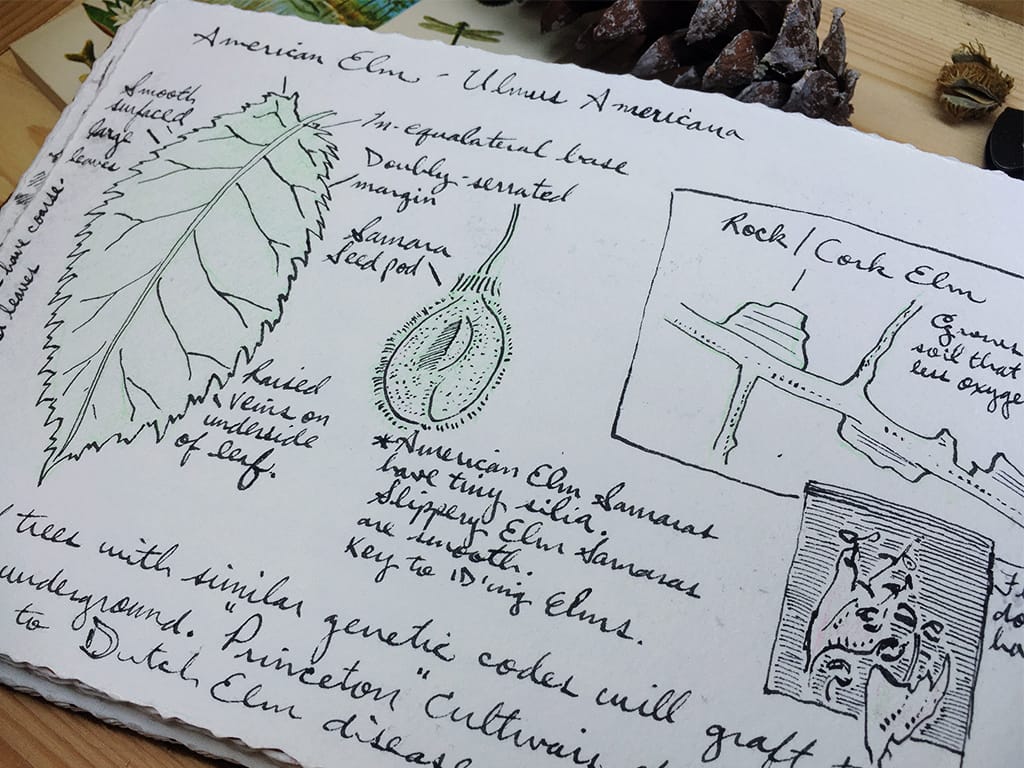 American Elm - Ulmus Americana
Smooth
surfaced
large
leaves
have coarse-
leaves
In-equalateral base
Doubly-serrated
margin
Samara
Seed pod
Raised
veins on
underside
of leaf.
*American Elm Samaras
have tiny silia.
Slippery Elm Samaras
are smooth.
Key to 'ID'ing Elms.
Rock/Cork Elm
Grows
soil that
less oxyge
trees with similar genetic codes will graft
underground. "Princeton" Cultivars
to Dutch Elm diseas